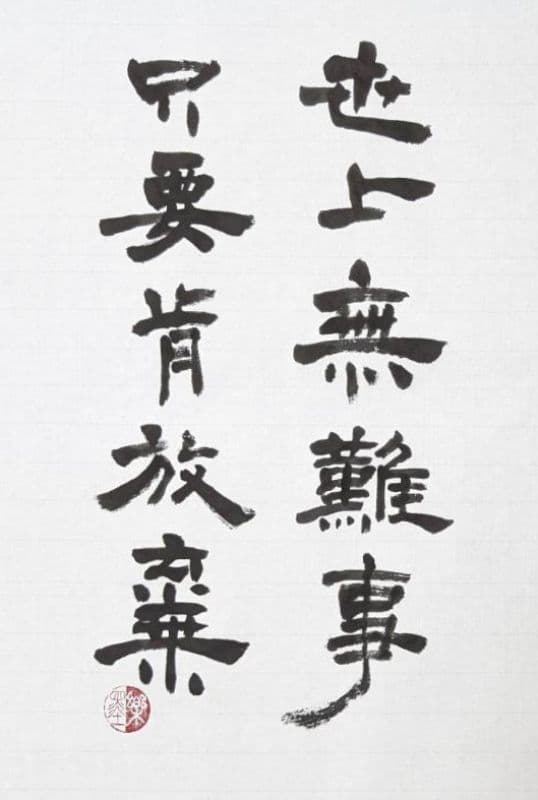 世上無難事
只要肯放棄